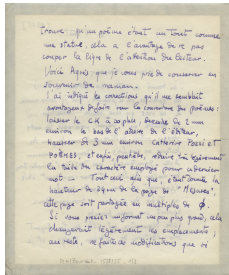 trouve qu'un poème étant un tout comme
une statue, cela a l'avantage de ne pas
couper la ligne de l'attention du lecteur.
Voici Agnès que je vous prie de conserver en
souvenir de maman.
J'ai indiqué les corrections qu'il me semblait
avantageux de faire sur la couverture des poèmes :
laisser le à sa place, descendre de 2 mm
environ le bas de l'adresse de l'éditeur,
hausser de 3 mm environ Catherine Pozzi et
POÈMES, et enfin, peut-être, réduire très légèrement
la taille du caractère employé pour
mot — Tout cela afin que, étant donné la
hauteur de de la page de "Mesures",
cette page soit partagée en multiples de φ.
Si vous preniez un format un peu plus grand, cela
changerait légèrement les emplacements ;
au reste, ne faites de modifications que si